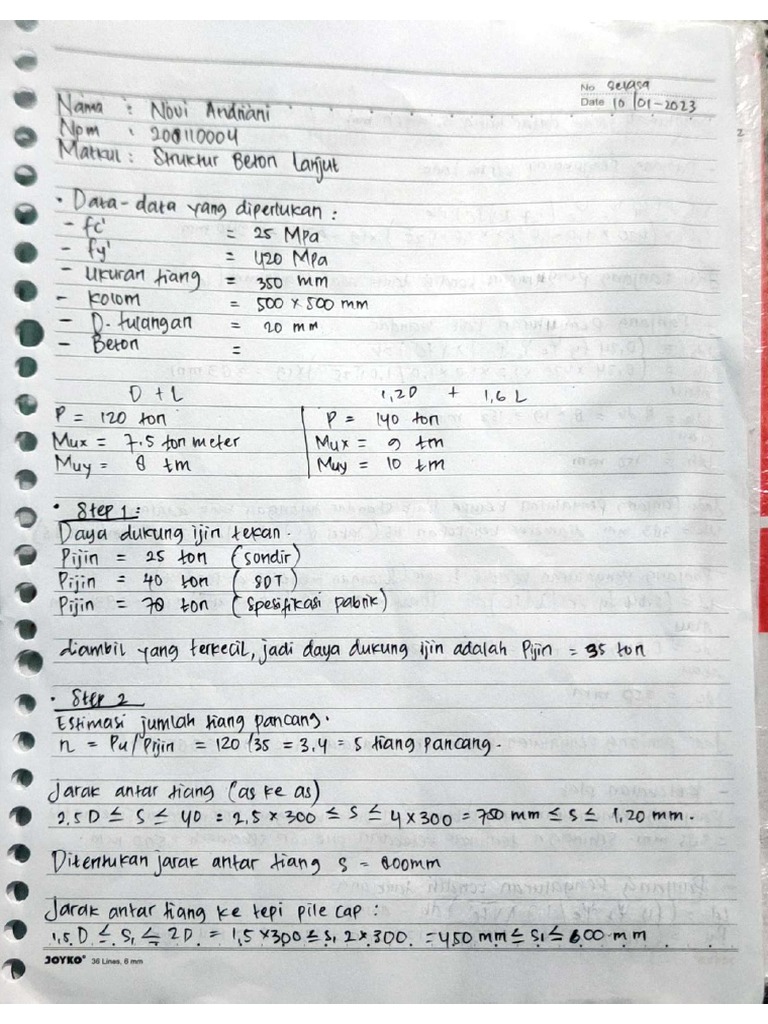 No Selasa
Date 10/01-2023
Nama : Novi Andriani
Npm : 200110004
Matkul : Struktur Beton Lanjut
• Data-data yang diperlukan :
- fc' = 25 Mpa
- fy' = 420 Mpa
- Ukuran tiang = 350 mm
- Kolom = 500 x 500 mm
- D. tulangan = 20 mm
- Beton =
D + L
P = 120 ton
Mux = 7.5 ton meter
Muy = 8 tm
1,2D + 1,6 L
P = 140 ton
Mux = 9 tm
Muy = 10 tm
• Step 1 :
Daya dukung ijin tekan.
Pijin = 25 ton (sondir)
Pijin = 40 ton (SPT)
Pijin = 70 ton (Spesifikasi pabrik)
diambil yang terkecil, jadi daya dukung ijin adalah Pijin = 35 ton
• Step 2
Estimasi jumlah tiang pancang.
n = Pu/Pijin = 120/35 = 3.4 = 5 tiang pancang.
Jarak antar tiang (as ke as)
2.5 D ≤ S ≤ 4D = 2,5 x 300 ≤ S ≤ 4 x 300 = 750 mm ≤ S ≤ 1,20 mm.
Ditentukan jarak antar tiang S = 800mm
Jarak antar tiang ke tepi pile cap :
1,5. D ≤ S1 ≤ 2D = 1,5 x 300 ≤ S1 2 x 300. = 450 mm ≤ S1 ≤ 600 mm
JOYKO® 36 Lines, 6 mm